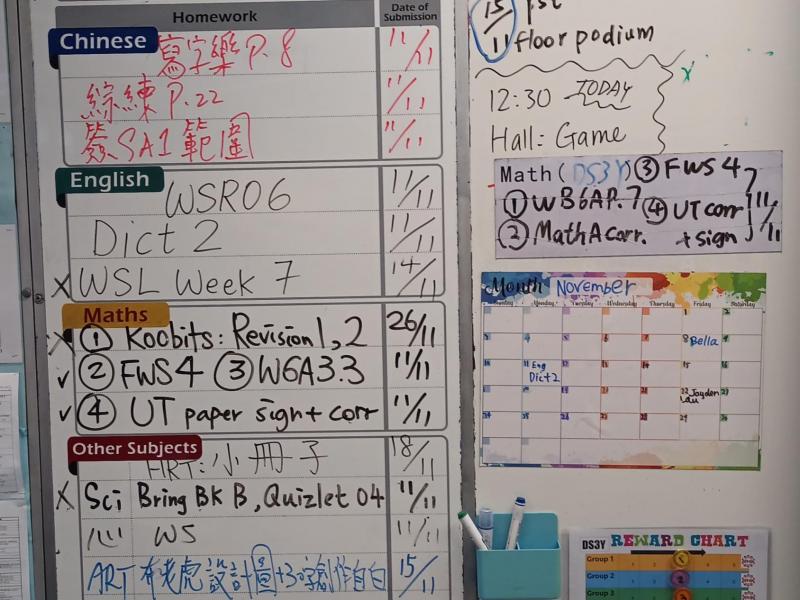 Homework
Date of Submission
Chinese
寫字樂 P. 8 11/11
綜練 P.22 11/11
簽SA1 範圍 11/11
English
WSR06 11/11
Dict 2 11/11
X WSL Week 7 14/11
Maths
X ① Koobits: Revision 1, 2 26/11
✓ ② FWS4 ③ W6A3.3 11/11
✓ ④ UT paper sign + corr 11/11
Other Subjects
HRT: 小冊子 18/11
X Sci Bring BK B, Quizlet 04 11/11
心 WS 11/11
ART 布老虎設計圖+3 15/11
15/11
floor podium
12:30 TODAY
Hall: Game
Math (DS3Y) ③ FWS 4
① WB6A P.7 ④ UT corr 11/11
② Math A corr. + sign
Month November
Sunday Monday Tuesday Wednesday Thursday Friday Saturday
8 Bella
11 Eng
Dict 2
22 Jayden
Lau
DS3Y REWARD CHART
Group 1
Group 2
Group 3